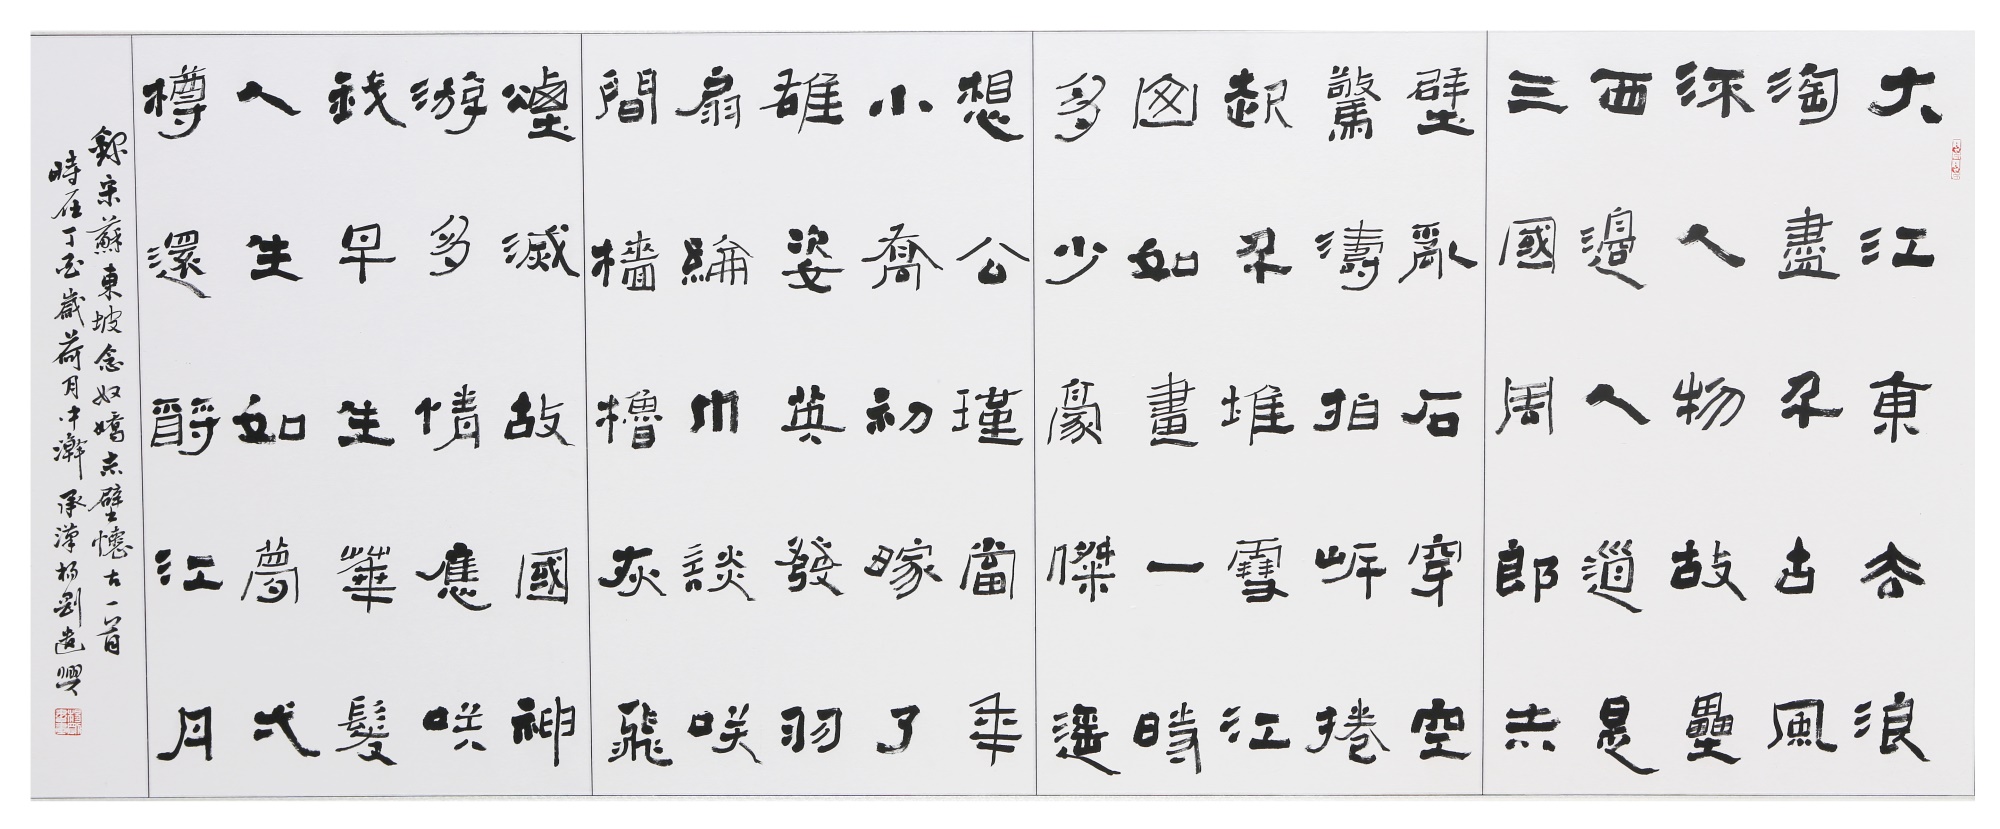 大江東去浪
淘盡不古風
流人物故壘
西邊人道是
三國周郎赤
壁亂石穿空
驚濤拍岸捲
起不堆雪江
山如畫一時
多少豪傑遥
想公瑾當年
小喬初嫁了
雄姿英發羽
扇綸巾談咲
間檣櫓灰飛
煙滅故國神
游多情應咲
我早生華髮
人生如夢一
樽還酹江月
錄宋蘇東坡念奴嬌赤壁懷古一首
時在丁酉歲荷月中澣承漢楊剛遣興